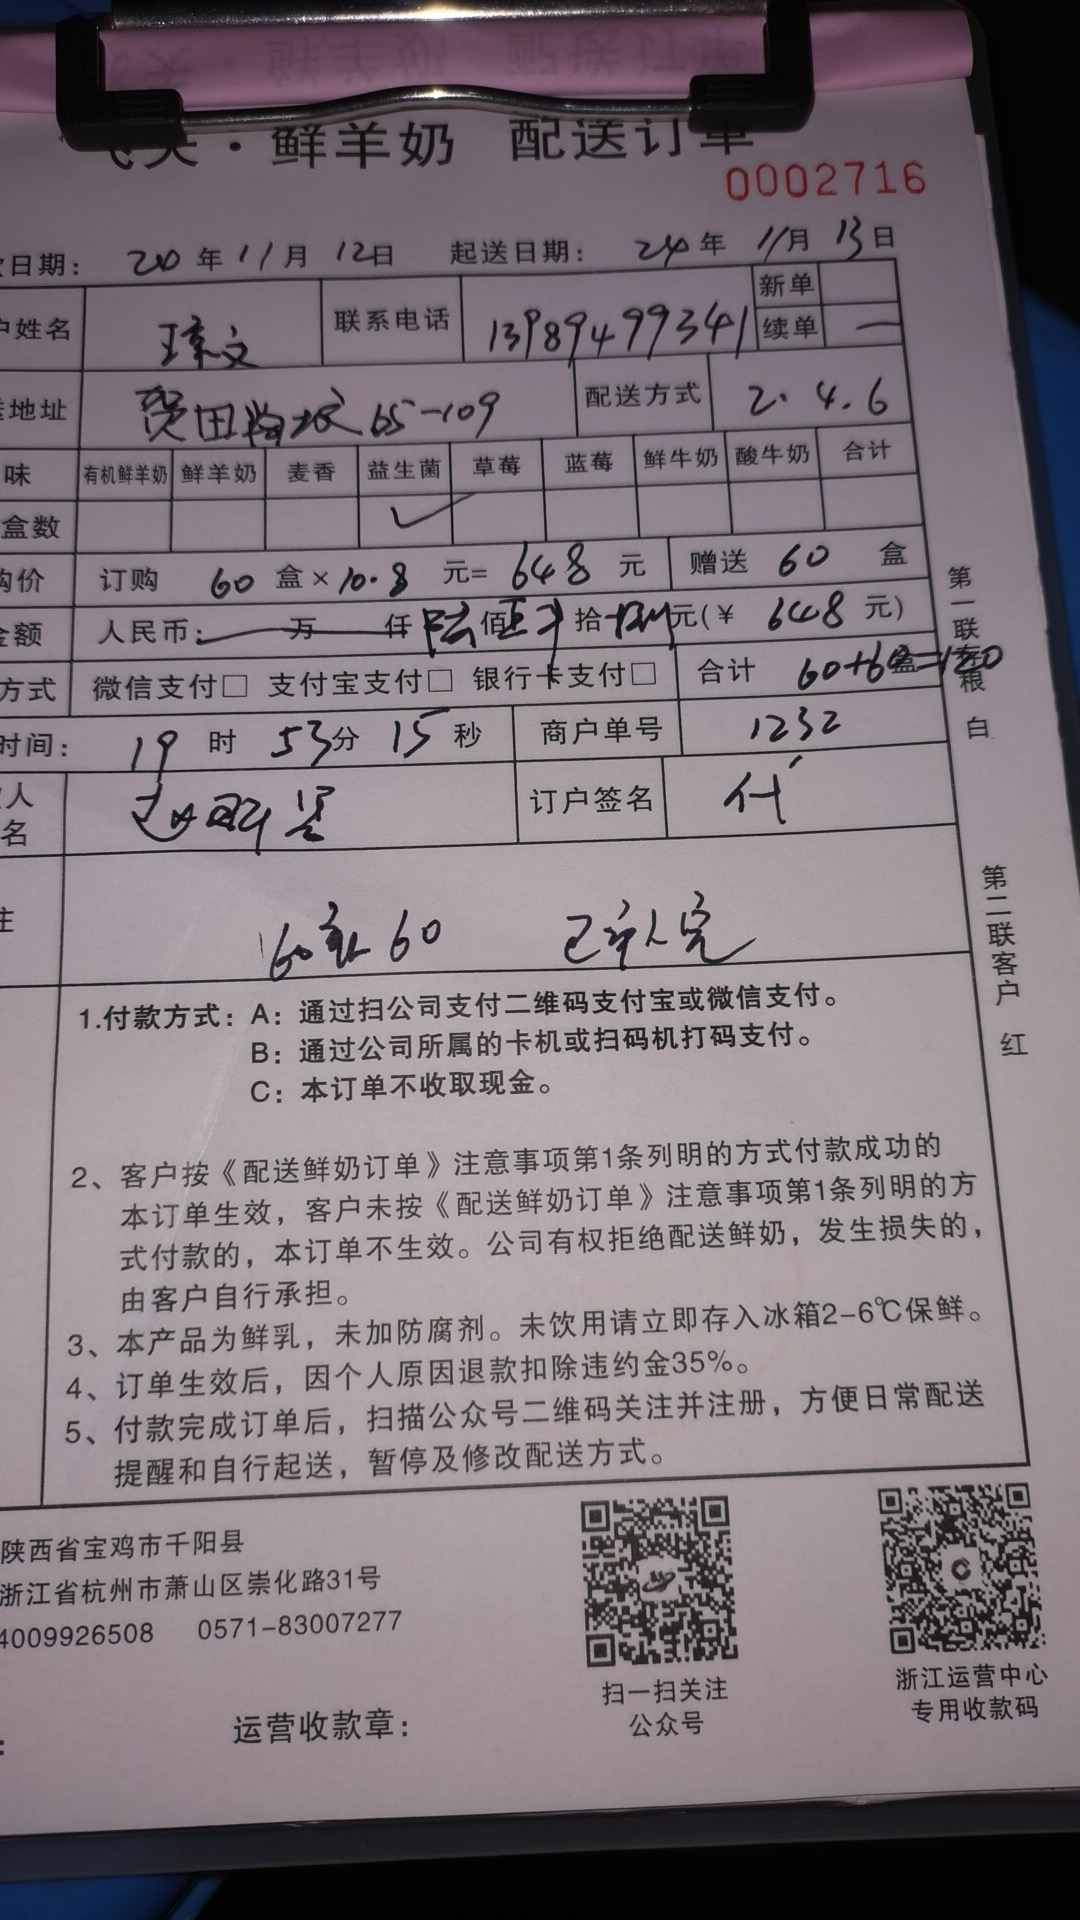 ·鲜羊奶 配送订单
0002716
日期： 24年11月12日 起送日期： 24年11月13日
户姓名 文 联系电话 13989499341 新单
续单 一
地址 田 65-109 配送方式 2.4.6
味 有机鲜羊奶 鲜羊奶 麦香 益生菌 草莓 蓝莓 鲜牛奶 酸牛奶 合计
盒数 ✓
购价 订购 60 盒×10.8 元= 648 元 赠送 60 盒
金额 人民币： 万 仟 陆 佰 拾 元(￥ 648 元)
方式 微信支付□ 支付宝支付□ 银行卡支付□ 合计 60+60盒=120
时间： 19 时 53分 15 秒 商户单号 1232
人
名 订户签名 代
注 60 60 已 完
第一联存根 白
第二联客户 红
1.付款方式：A：通过扫公司支付二维码支付宝或微信支付。
B：通过公司所属的卡机或扫码机打码支付。
C：本订单不收取现金。
2、客户按《配送鲜奶订单》注意事项第1条列明的方式付款成功的
本订单生效，客户未按《配送鲜奶订单》注意事项第1条列明的方
式付款的，本订单不生效。公司有权拒绝配送鲜奶，发生损失的，
由客户自行承担。
3、本产品为鲜乳，未加防腐剂。未饮用请立即存入冰箱2-6℃保鲜。
4、订单生效后，因个人原因退款扣除违约金35%。
5、付款完成订单后，扫描公众号二维码关注并注册，方便日常配送
提醒和自行起送，暂停及修改配送方式。
陕西省宝鸡市千阳县
浙江省杭州市萧山区崇化路31号
4009926508 0571-83007277
扫一扫关注
公众号
浙江运营中心
专用收款码
运营收款章：